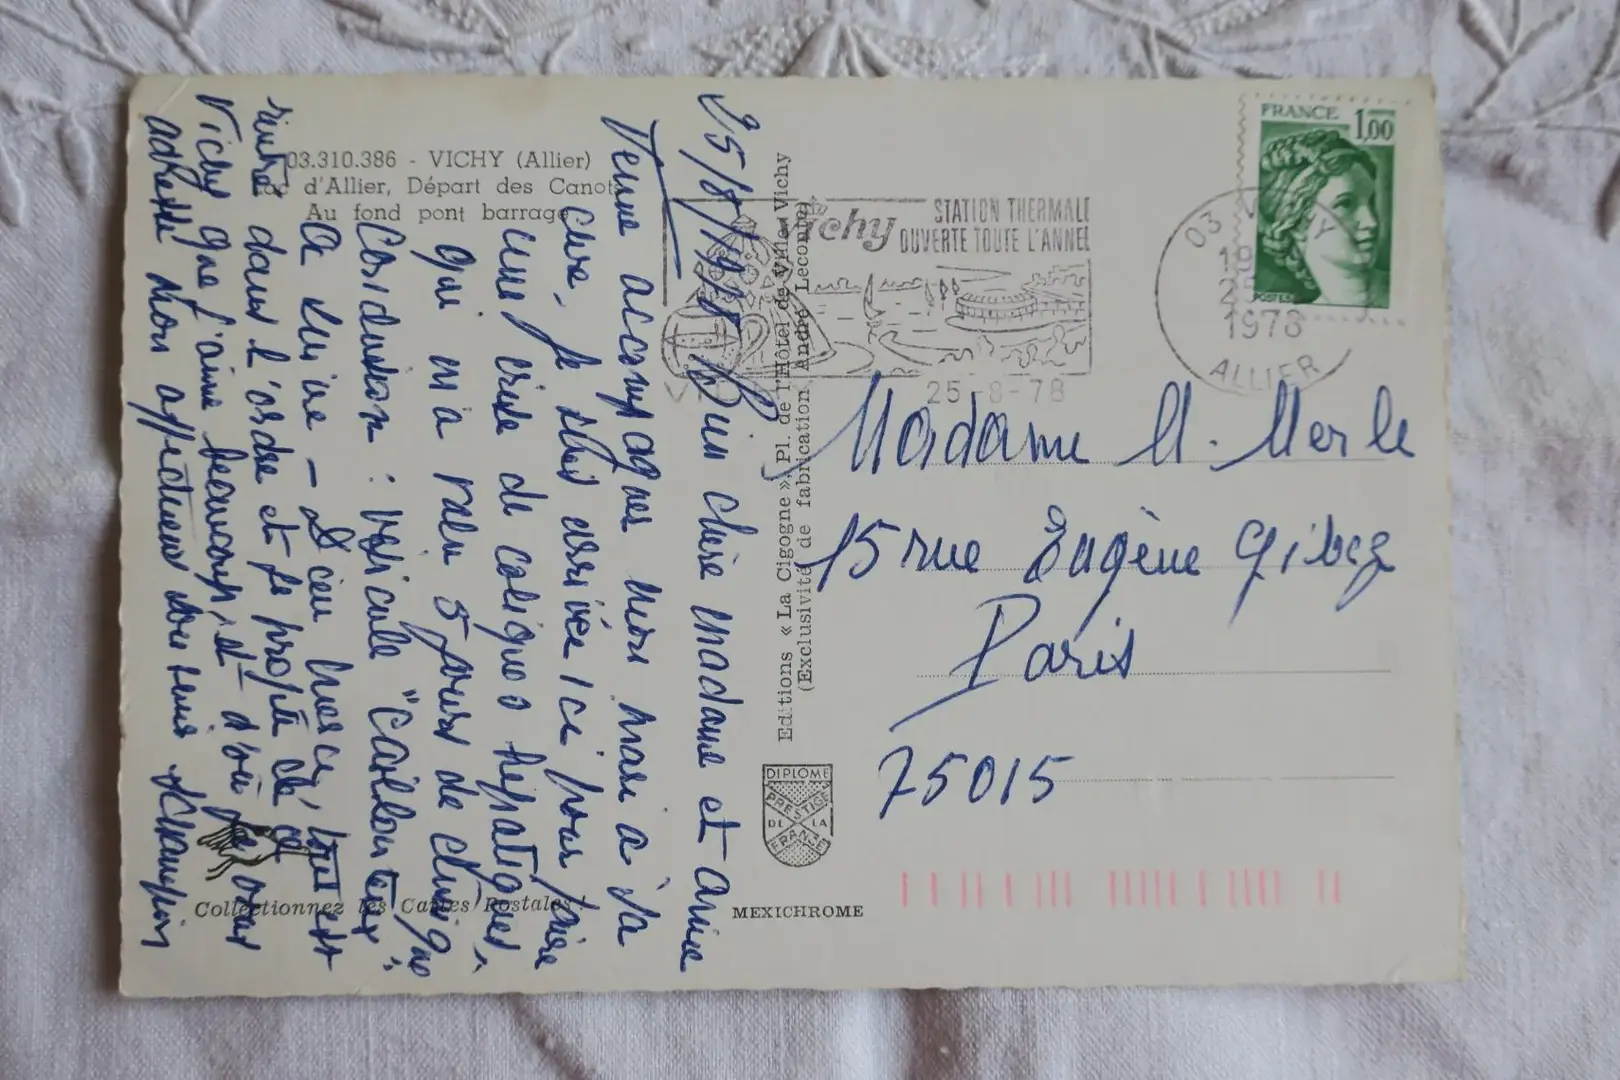 03.310.386 - VICHY (Allier)
Lac d'Allier, Départ des Canots
Au fond pont barrage
25/8/1978 Bien chère madame et amie
Venue accompagner mon mari à sa
cure, je suis arrivée ici pour faire
une crise de coliques hépatiques,
qui m'a valu 5 jours de clinique
Conclusion : vésicule "caillouteuse"
à suivre - Dieu merci, tout est
rentré dans l'ordre et je profite de ce
Vichy que j'aime beaucoup, et d'où je vous
adresse mon affectueux souvenir
Champion
Collectionnez les Cartes Postales !
Editions « La Cigogne », Pl. de l'Hôtel de Ville - Vichy
(Exclusivité de fabrication André Leconte)
DIPLOME
PRESTIGE
DE LA
FRANCE
MEXICHROME
Vichy
STATION THERMALE
OUVERTE TOUTE L'ANNEE
25-8-78
03 VICHY
1978
ALLIER
FRANCE 1,00
POSTES
Madame M. Merle
15 rue Eugène Gibez
Paris
75015